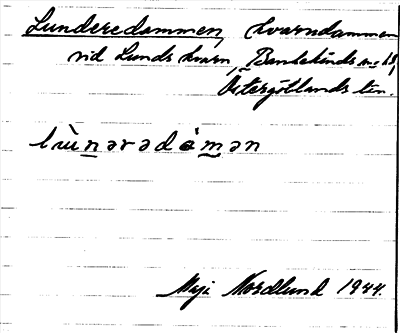 Lunderedammen, kvarndammen
vid Lunds kvarn, Bankekinds sn
Östergötlands län.
lùṉərədàm̱ən
Maj Nordlund 1944